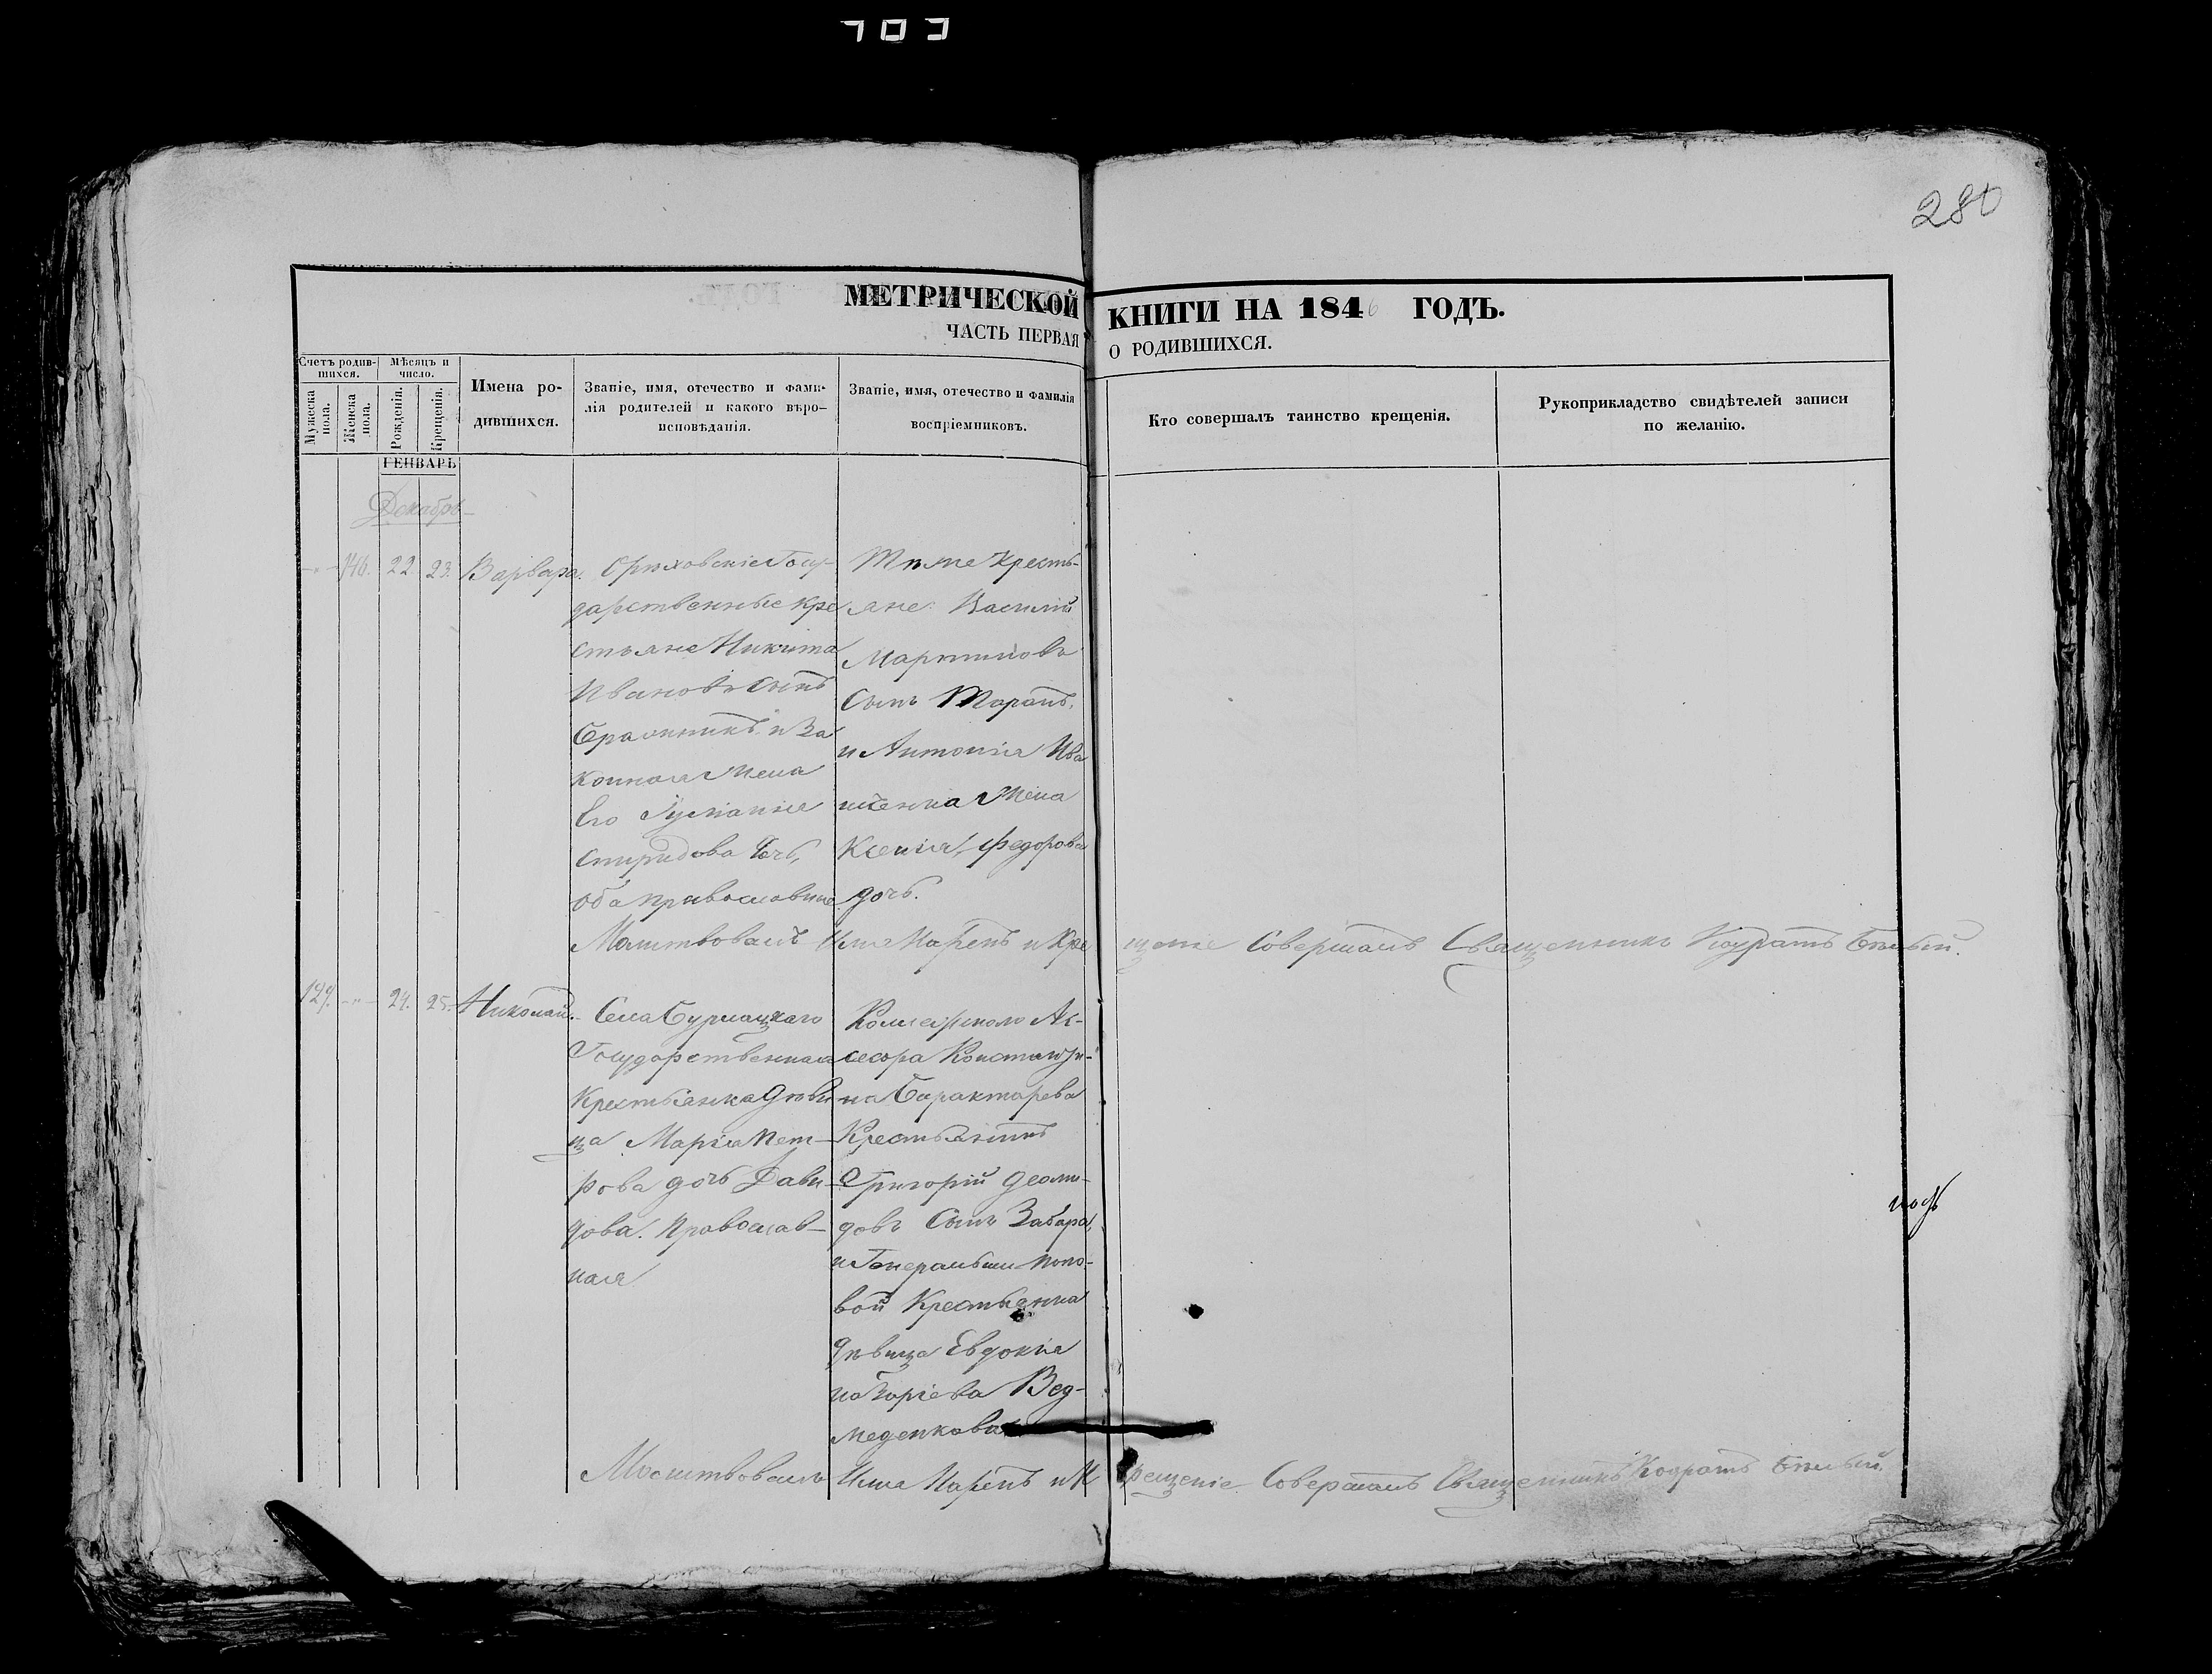 703
280
МЕТРИЧЕСКОЙ КНИГИ НА 1846 ГОДЪ.
ЧАСТЬ ПЕРВАЯ О РОДИВШИХСЯ.
Счетъ родившихся.
Мужеска пола.
Женска пола.
Мѣсяцъ и число.
Рожденія.
Крещенія.
Имена родившихся.
Званіе, имя, отечество и фамилія родителей и какого вѣроисповѣданія.
Званіе, имя, отечество и фамилія воспріемниковъ.
Кто совершалъ таинство крещенія.
Рукоприкладство свидѣтелей записи по желанію.
ГЕНВАРЬ
Декабрь
146. 22 23. Варвара.
Орѣховскіе Госу-
дарственные кре
стьяне Никита
Ивановъ Сынъ
и За
конная Жена
Его Іуліанія
Спиридова дочь,
оба православные
Тѣ же Кресть-
яне: Василій
Мартиновъ
Сынъ Таранъ,
и Антонія Ива
щенка Жена
Ксенія Федорова
дочь.
Молитвовалъ Имя Нарекъ и Кре щеніе Совершалъ Священникъ Кодратъ Бѣлый.
129. 24. 25. Николай.
Села Бурлацкаго
Государственная
Крестьянка Дѣви
ца Марія Пет-
рова дочь Дави-
дова. Православ-
ная
Коллежскаго Ас-
сесора Константи-
на Барактарева
Крестьянинъ
Григорій Деоми-
довъ Сынъ Забара,
и Генеральши Попо-
вой Крестьянка
дѣвица Евдокія
Назоріева Вед-
меденкова
Молитвовалъ Имя Нарекъ и К рещеніе Совершалъ Священникъ Кодратъ Бѣлый.